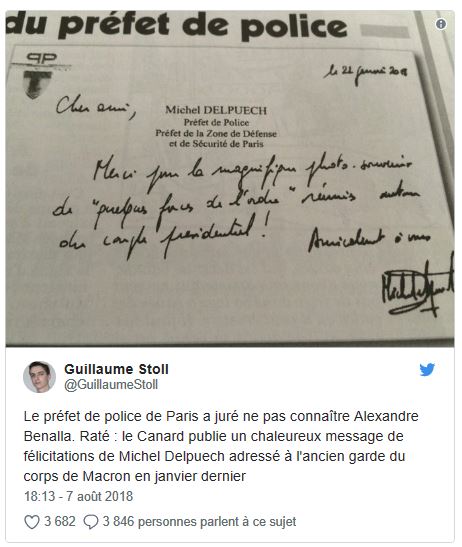 du préfet de police
PP
le 22 janvier 2018
Cher ami,
Michel DELPUECH
Préfet de Police
Préfet de la Zone de Défense
et de Sécurité de Paris
Merci pour la magnifique photo-souvenir
de "quelques forces de l'ordre" réunies autour
du couple présidentiel !
Amicalement à vous
Guillaume Stoll
@GuillaumeStoll
Le préfet de police de Paris a juré ne pas connaître Alexandre
Benalla. Raté : le Canard publie un chaleureux message de
félicitations de Michel Delpuech adressé à l'ancien garde du
corps de Macron en janvier dernier
18:13 - 7 août 2018
3 682
3 846 personnes parlent à ce sujet